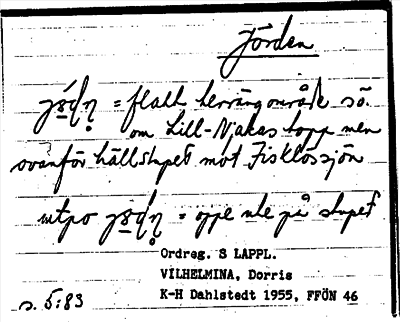 Jorden
= flatt terrängområde sö.
om Lill-Njakas topp men
ovanför hällstupet mot Fisklössjön
utpo = oppe ute på stupet
Ordreg. S LAPPL.
VILHELMINA, Dorris
s. 5:83 K-H Dahlstedt 1955, FFÖN 46